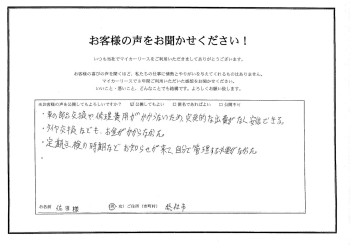 お客様の声をお聞かせください！
いつも当社でマイカーリースをご利用いただきましてありがとうございます。
お客様の喜びの声を聞くほど、私たちの仕事に情熱とやりがいを与えてくれるものはありません。
マイカーリースでご利用いただいた感想をお聞かせください。
いいこと・悪いこと、どんなことでも結構です。よろしくお願い致します。
※お客様の声を公開してもよろしいですか？ ☑公開してもよい □匿名であればよい □公開不可
・車の部品交換や修理費用がかからないため、突発的な出費がなく安心できる。
・タイヤ交換なども、お金がかからない。
・定期点検の時期などお知らせが来て、自分で管理する必要がない。
お名前 佐 様 ご住所（市町村） 松江市